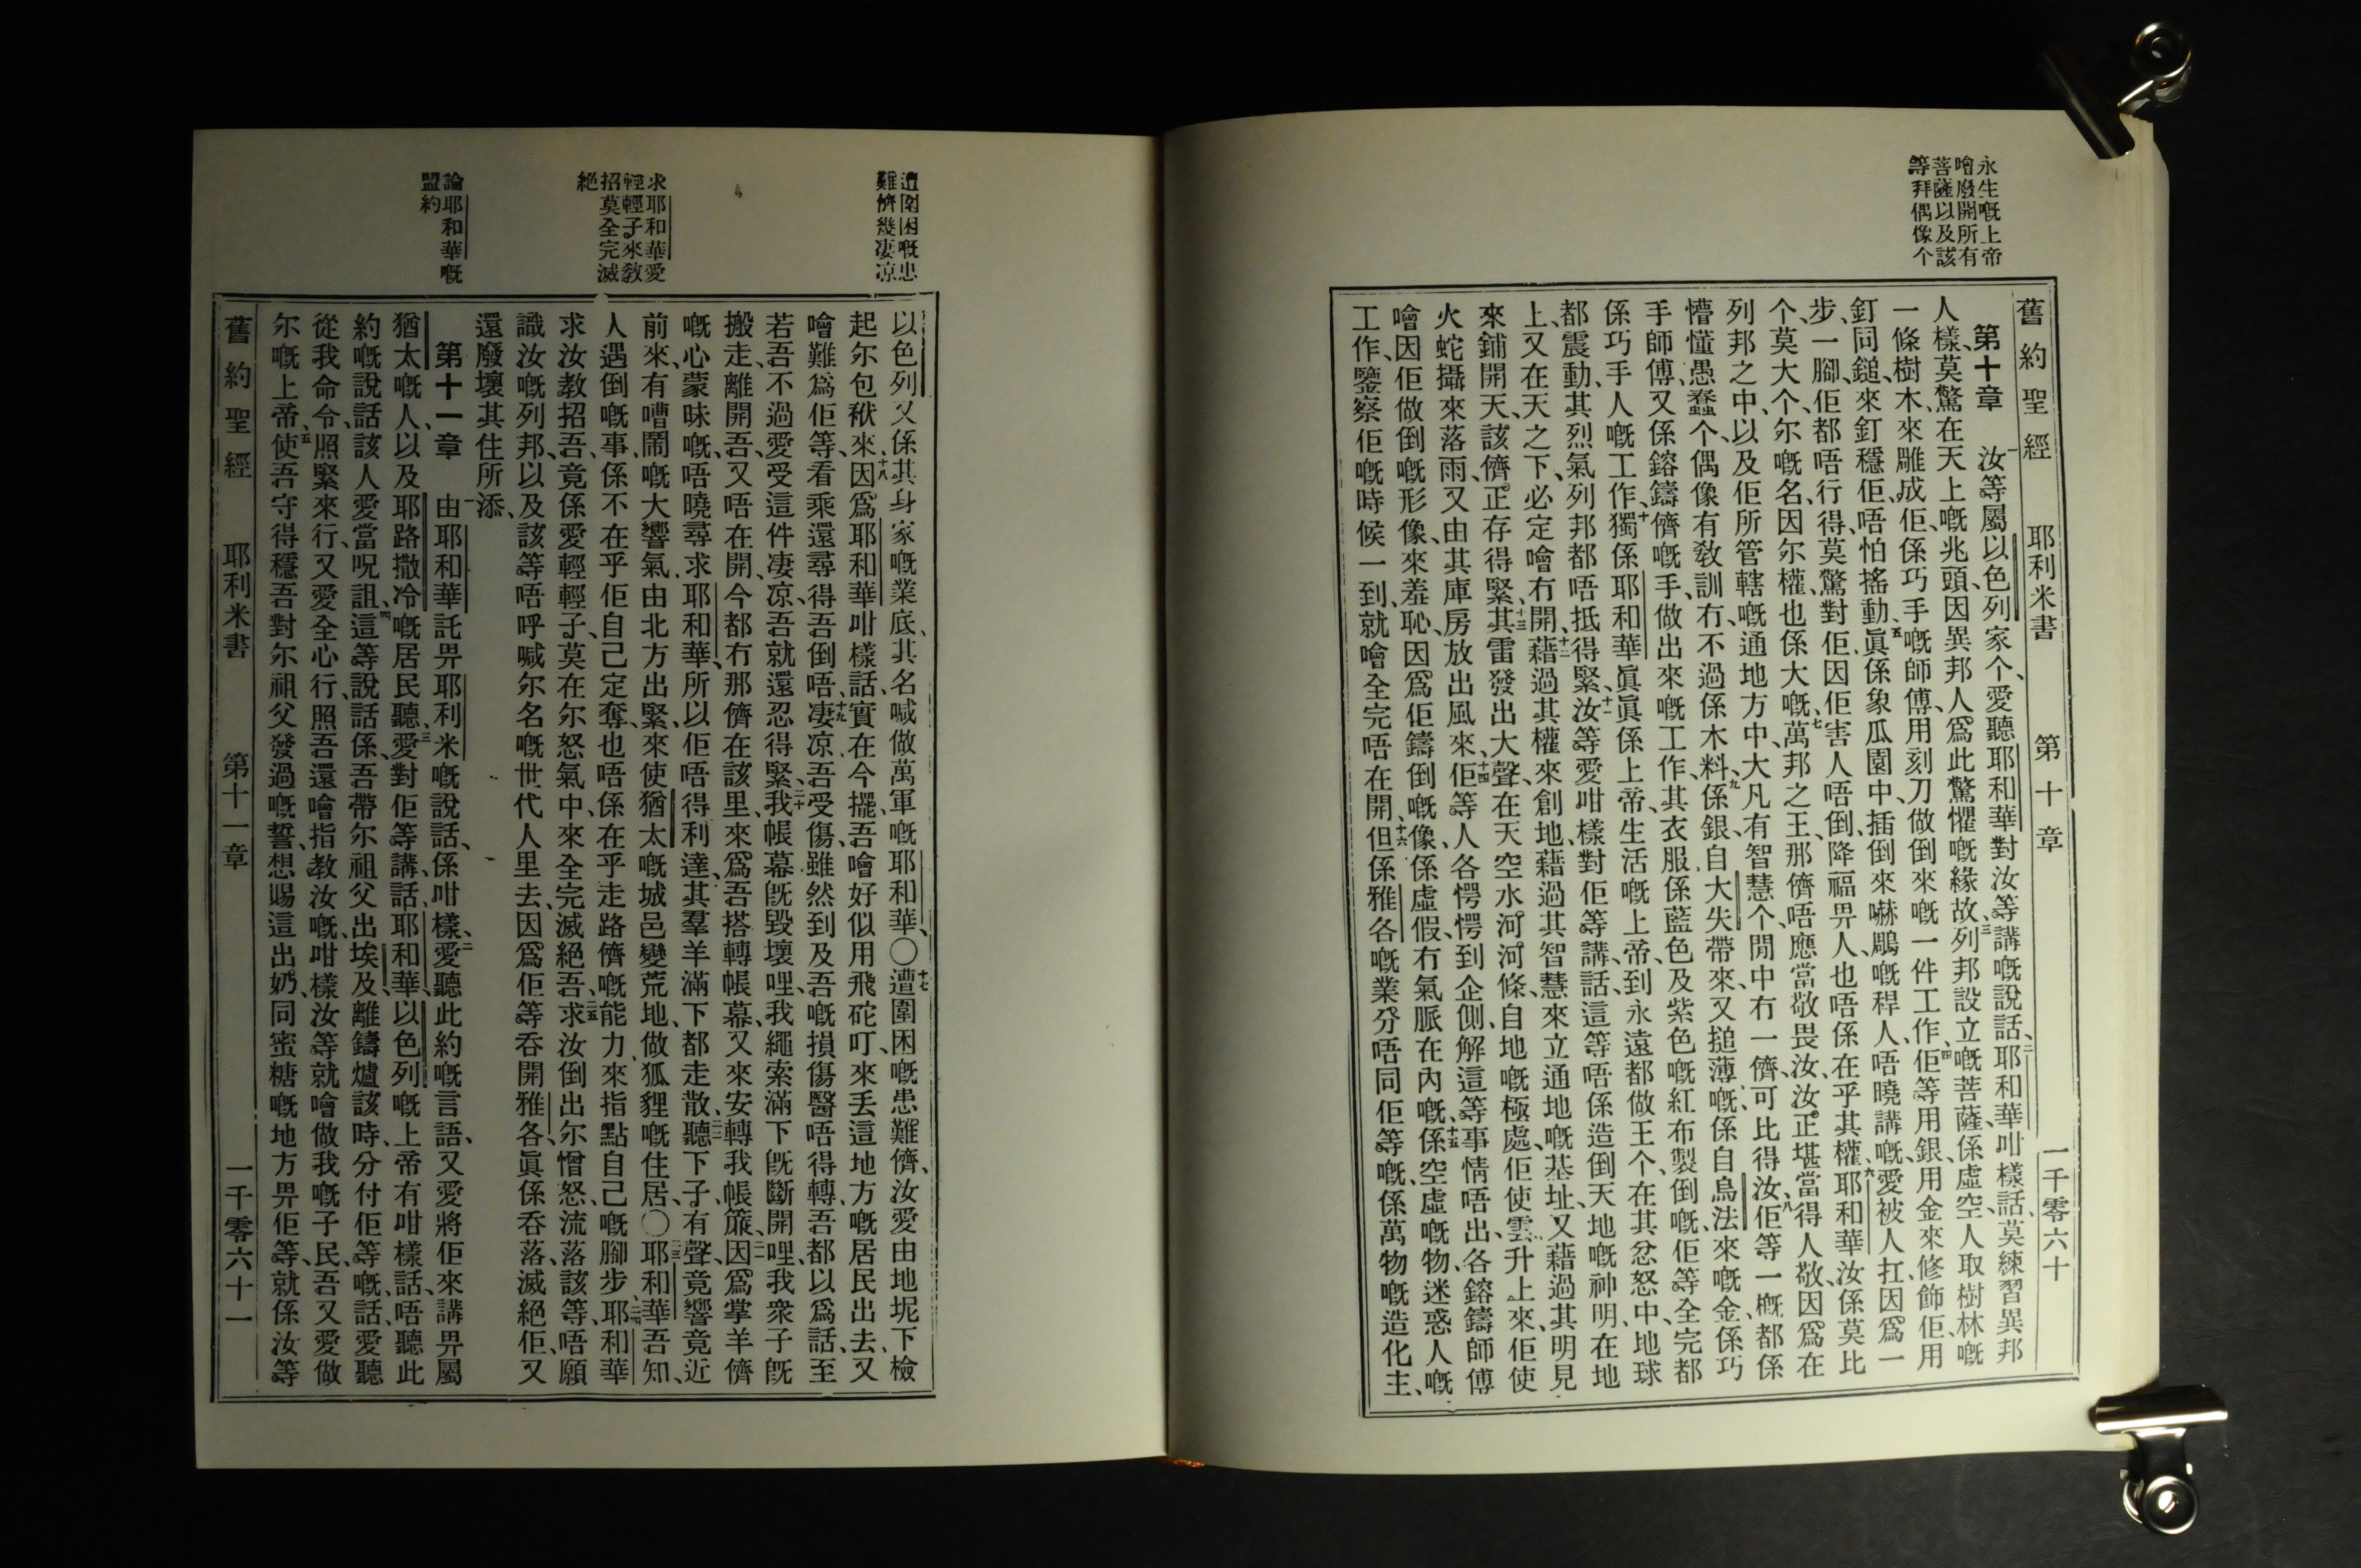 永生嘅上帝
噲廢開所有
菩薩以及該
等拜偶像个
舊約聖經 耶利米書 第十章 一千零六十
第十章 一汝等屬以色列家个、愛聽耶和華對汝等講嘅說話、二耶和華咁樣話、莫練習異邦
人樣、莫驚在天上嘅兆頭、因異邦人爲此驚懼嘅緣故、三列邦設立嘅菩薩、係虛空、人取樹林嘅
一條樹木、來雕成佢、係巧手嘅師傅、用刻刀做倒來嘅一件工作、四佢等用銀、用金來修飾佢、用
釘同鎚、來釘穩佢、唔怕搖動、五眞係象瓜園中、插倒來嚇鵰嘅稈人、唔曉講嘅、愛被人扛、因爲一
步、一腳、佢都唔行得、莫驚對佢、因佢害人唔倒、降福畀人也唔係在乎其權、六耶和華汝係莫比
个、莫大个、尔嘅名、因尔權也係大嘅、七萬邦之王、那儕唔應當敬畏汝、汝正堪當得人敬、因爲在
列邦之中、以及佢所管轄嘅通地方中、大凡有智慧个、閒中冇一儕、可比得汝、八佢等一概都係
懵懂愚蠢个、偶像有教訓冇、不過係木料、九係銀、自大失帶來、又搥薄嘅、係自烏法來嘅金、係巧
手師傅、又係鎔鑄儕嘅手、做出來嘅工作、其衣服係藍色、及紫色嘅紅布製倒嘅、佢等全完都
係巧手人嘅工作、十獨係耶和華眞眞係上帝、生活嘅上帝、到永遠都做王个、在其忿怒中、地球
都震動、其烈氣列邦都唔抵得緊、十一汝等愛咁樣對佢等講、話、這等唔係造倒天地嘅神明、在地
上、又在天之下、必定噲冇開、十二藉過其權來創地、藉過其智慧來立通地嘅基址、又藉過其明見
來鋪開天、該儕正存得緊、十三其雷發出大聲、在天空水河河條、自地嘅極處、佢使雲升上來、佢使
火蛇攝來落雨、又由其庫房放出風來、十四佢等人各愕愕到企側、解這等事情唔出、各鎔鑄師傅
噲因佢做倒嘅形像、來羞恥、因爲佢鑄倒嘅像係虛假、冇氣脈在內嘅、十五係空虛嘅物、迷惑人嘅
工作、鑒察佢嘅時候一到、就噲全完唔在開、十六但係雅各嘅業分唔同佢等嘅、係萬物嘅造化主、
遭圍困嘅患
難儕幾凄凉
求耶和華愛
輕輕子來教
招莫全完滅
絕
論耶和華嘅
盟約
以色列又係其身家嘅業底、其名喊做萬軍嘅耶和華、〇十七遭圍困嘅患難儕、汝愛由地坭下檢
起尔包袱來、十八因爲耶和華咁樣話、實在今擺、吾噲好似用飛砣叮、來丟這地方嘅居民出去、又
噲難爲佢等、看乘還尋得吾倒唔、十九凄凉、吾受傷、雖然到及、吾嘅損傷醫唔得轉、吾都以爲話、至
若吾不過愛受這件凄凉、吾就還忍得緊、二十我帳幕旣毀壞哩、我繩索滿下旣斷開哩、我衆子旣
搬走、離開吾、又唔在開、今都冇那儕在該里來爲吾搭轉帳幕、又來安轉我帳簾、二一因爲掌羊儕
嘅心蒙昧嘅、唔曉尋求耶和華、所以佢唔得利達、其羣羊滿下都走散、二二聽下子、有聲、竟響竟近
前來、有嘈鬧嘅大響氣由北方出緊、來使猶太嘅城邑變荒地、做狐狸嘅住居、〇二三耶和華吾知、
人遇倒嘅事、係不在乎佢自己定奪、也唔係在乎走路儕嘅能力來指點自己嘅腳步、二四耶和華
求汝教招吾、竟係愛輕輕子、莫在尔怒氣中、來全完滅絕吾、二五求汝倒出尔憎怒、流落該等、唔願
識汝嘅列邦、以及該等唔呼喊尔名嘅世代人里去、因爲佢等呑開雅各、眞係呑落、滅絕佢、又
還廢壞其住所添、
第十一章 一由耶和華託畀耶利米嘅說話、係咁樣、二愛聽此約嘅言語、又愛將佢來講畀屬
猶太嘅人、以及耶路撒冷嘅居民聽、三愛對佢等講、話、耶和華、以色列嘅上帝有咁樣話、唔聽此
約嘅說話該人愛當呪詛、四這等說話、係吾帶尔祖父出埃及、離鑄爐該時、分付佢等嘅、話、愛聽
從我命令、照緊來行、又愛全心行、照吾還噲指教汝嘅、咁樣汝等就噲做我嘅子民、吾又愛做
尔嘅上帝、五使吾守得穩吾對尔祖父發過嘅誓、想賜這出奶、同蜜糖嘅地方畀佢等、就係汝等
舊約聖經 耶利米書 第十一章 一千零六十一